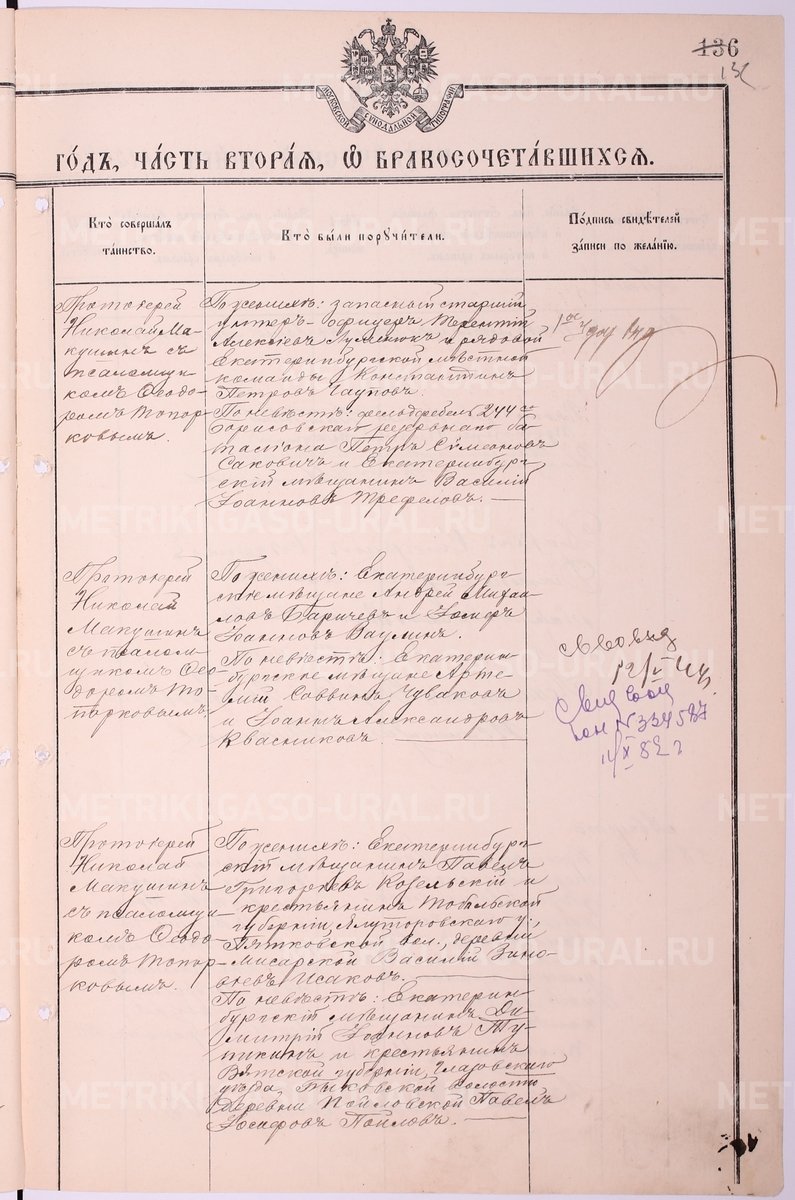 136
МОСКОВСКОЙ СѴНОДАЛЬНОЙ ТИПОГРАФІИ
ГО́ДЪ, ЧА́СТЬ ВТОРА́Я, Ѡ҆ БРАКОСОЧЕТА́ВШИХСЯ.
Кто̀ соверша́лъ
та́инство.
Кто̀ бы́ли порꙋчи́тели.
По́дпись свидѣ́телей
за́писи по жела́нїю.
Протоіерей
Николай Ма-
кушинъ съ
псаломщи-
комъ Ѳеодо-
ромъ Топор-
ковымъ.
По женихѣ: запасный старшій
унтеръ-офицеръ Терентій
Алексѣевъ и рядовой
Екатеринбургской мѣстной
команды Константинъ
Петровъ
По невѣстѣ: фельдфебель 244го
Борисовскаго резервнаго ба-
таліона Петръ Сѵмеоновъ
Саковичъ и Екатеринбург-
скій мѣщанинъ Василій
Іоанновъ Трефеловъ.
Протоіерей
Николай
Макушинъ
съ псалом-
щикомъ Ѳео-
доромъ То-
порковымъ.
По женихѣ: Екатеринбург-
скіе мѣщане Андрей Михаи-
ловъ Баричевъ и Іосифъ
Іоанновъ Паулинъ.
По невѣстѣ: Екатерин-
бургскіе мѣщане Арте-
мій Саввинъ Чуваковъ
и Іоаннъ Александровъ
Квасниковъ.
N 334587
Протоіерей
Николай
Макушинъ
съ псаломщи-
комъ Ѳеодо-
ромъ Топор-
ковымъ.
По женихѣ: Екатеринбург-
скій мѣщанинъ Павелъ
Григорьевъ Козельскій и
крестьянинъ Тобольской
губерніи, Ялуторовскаго у.,
Пятковской вол., деревни
Мисарской Василій Зино-
вьевъ Исаковъ.
По невѣстѣ: Екатерин-
бургскій мѣщанинъ Ди-
митрій Іоанновъ Ту-
пикинъ и крестьянинъ
Вятской губерніи, Глазовскаго
уѣзда, волости
деревни Пойловской Павелъ
Іосифовъ Пойловъ.
METRIKI.GASO-URAL.RU